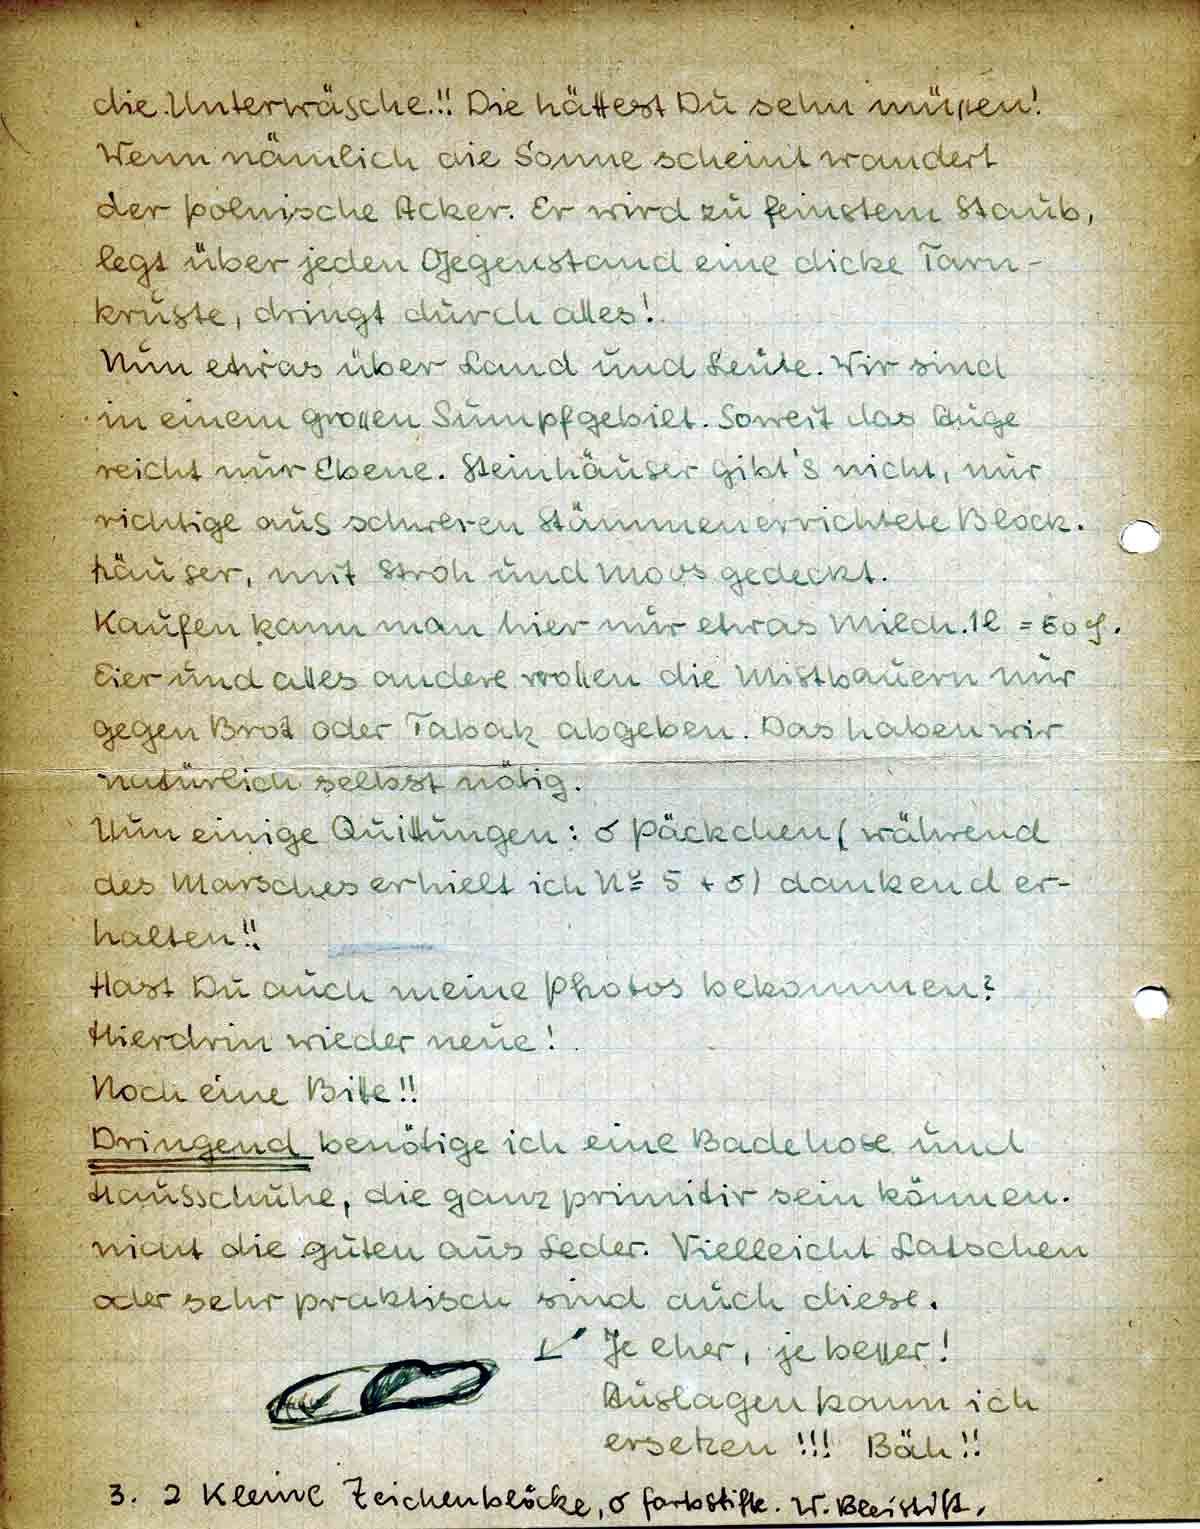 die Unterwäsche!! Die hättest Du sehn müssen!
Wenn nämlich die Sonne scheint wandert
der polnische Acker. Er wird zu feinstem Staub,
legt über jeden Gegenstand eine dicke Tarn-
kruste, dringt durch alles!
Nun etwas über Land und Leute. Wir sind
in einem grossen Sumpfgebilt. Soweit das Auge
reicht nur Ebene. Steinhäuser gibt's nicht, nur
richtige aus schweren Stämmen errichtete Block-
häuser, mit Stroh und Moos gedeckt.
Kaufen kann man hier nur etwas Milch. 1l =
Eier und alles andere wollen die Mistbauern nur
gegen Brot oder Tabak abgeben. Das haben wir
natürlich selbst nötig.
Nun einige Quittungen: 6 Päckchen (während
des Marsches erhielt ich No 5 + 6) dankend er-
halten!!
Hast Du auch meine Photos bekommen?
Hierdrin wieder neue!
Noch eine Bitte!!
Dringend benötige ich eine Badehose und
Hausschuhe, die ganz primitiv sein können.
nicht die guten aus Leder. Vielleicht Latschen
oder sehr praktisch sind auch diese.
Je eher, je besser!
Auslagen kann ich
ersetzen!!! Bäh!!
3. 2 Kleine Zeichenblöcke, 6 Farbstifte. W. Bleistift.